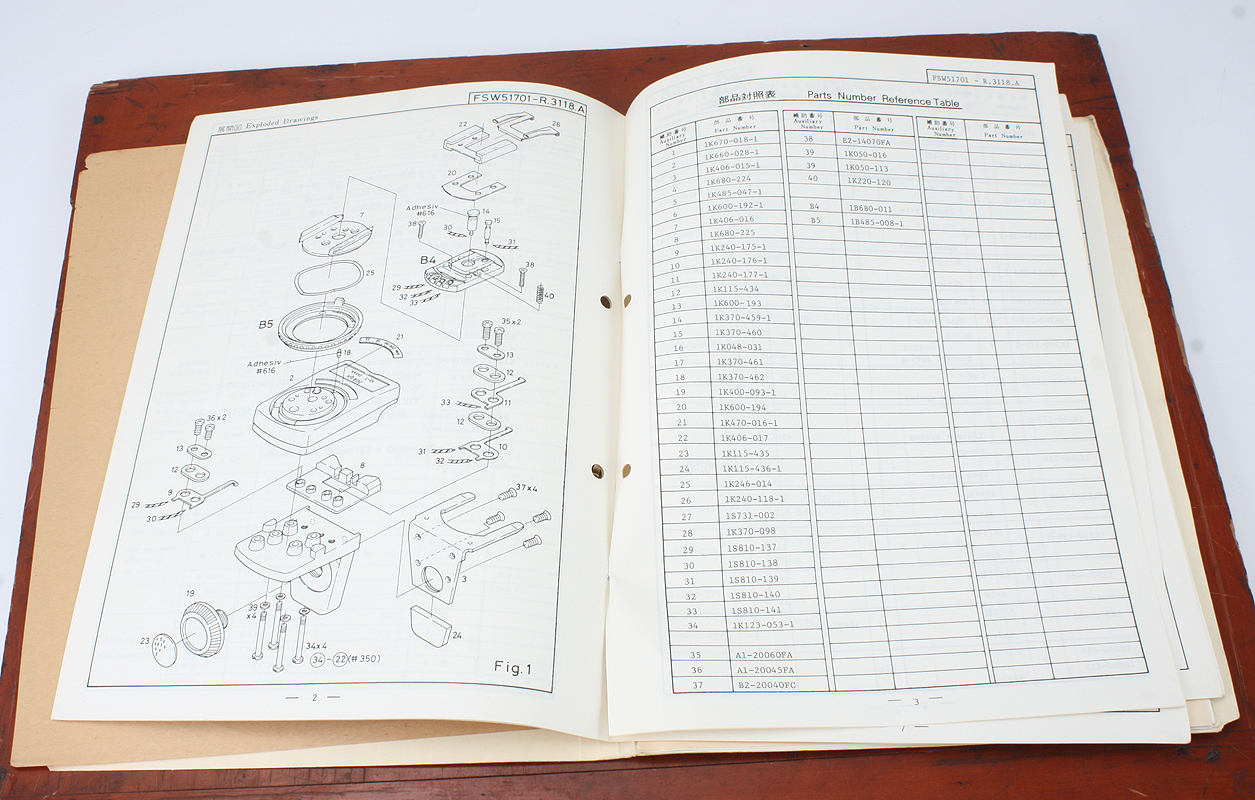 FSW51701-R.3118.A
展開図 Exploded Drawings
22
26
20
Adhesiv
#616
14
15
38
30
31
7
B4
38
25
29
32
33
40
B5
21
35x2
18
13
Adhesiv
#616
2
12
33
11
36x2
12
13
31
10
32
12
8
9
29
30
37x4
3
19
39
x4
23
24
34x4
34-22(#350)
Fig.1
— 2 —
FSW51701 - R.3118.A
部品対照表 Parts Number Reference Table
補助番号 Auxiliary Number 部品番号 Part Number 補助番号 Auxiliary Number 部品番号 Part Number 補助番号 Auxiliary Number 部品番号 Part Number
1 1K670-018-1 38 B2-14070FA
2 1K660-028-1 39 1K050-016
3 1K406-015-1 39 1K050-113
4 1K680-224 40 1K220-120
5 1K485-047-1
6 1K600-192-1 B4 1B680-011
7 1K406-016 B5 1B485-008-1
8 1K680-225
9 1K240-175-1
10 1K240-176-1
11 1K240-177-1
12 1K115-434
13 1K600-193
14 1K370-459-1
15 1K370-460
16 1K048-031
17 1K370-461
18 1K370-462
19 1K400-093-1
20 1K600-194
21 1K470-016-1
22 1K406-017
23 1K115-435
24 1K115-436-1
25 1K246-014
26 1K240-118-1
27 1S731-002
28 1K370-098
29 1S810-137
30 1S810-138
31 1S810-139
32 1S810-140
33 1S810-141
34 1K123-053-1
35 A1-20060FA
36 A1-20045FA
37 B2-20040FC
— 3 —